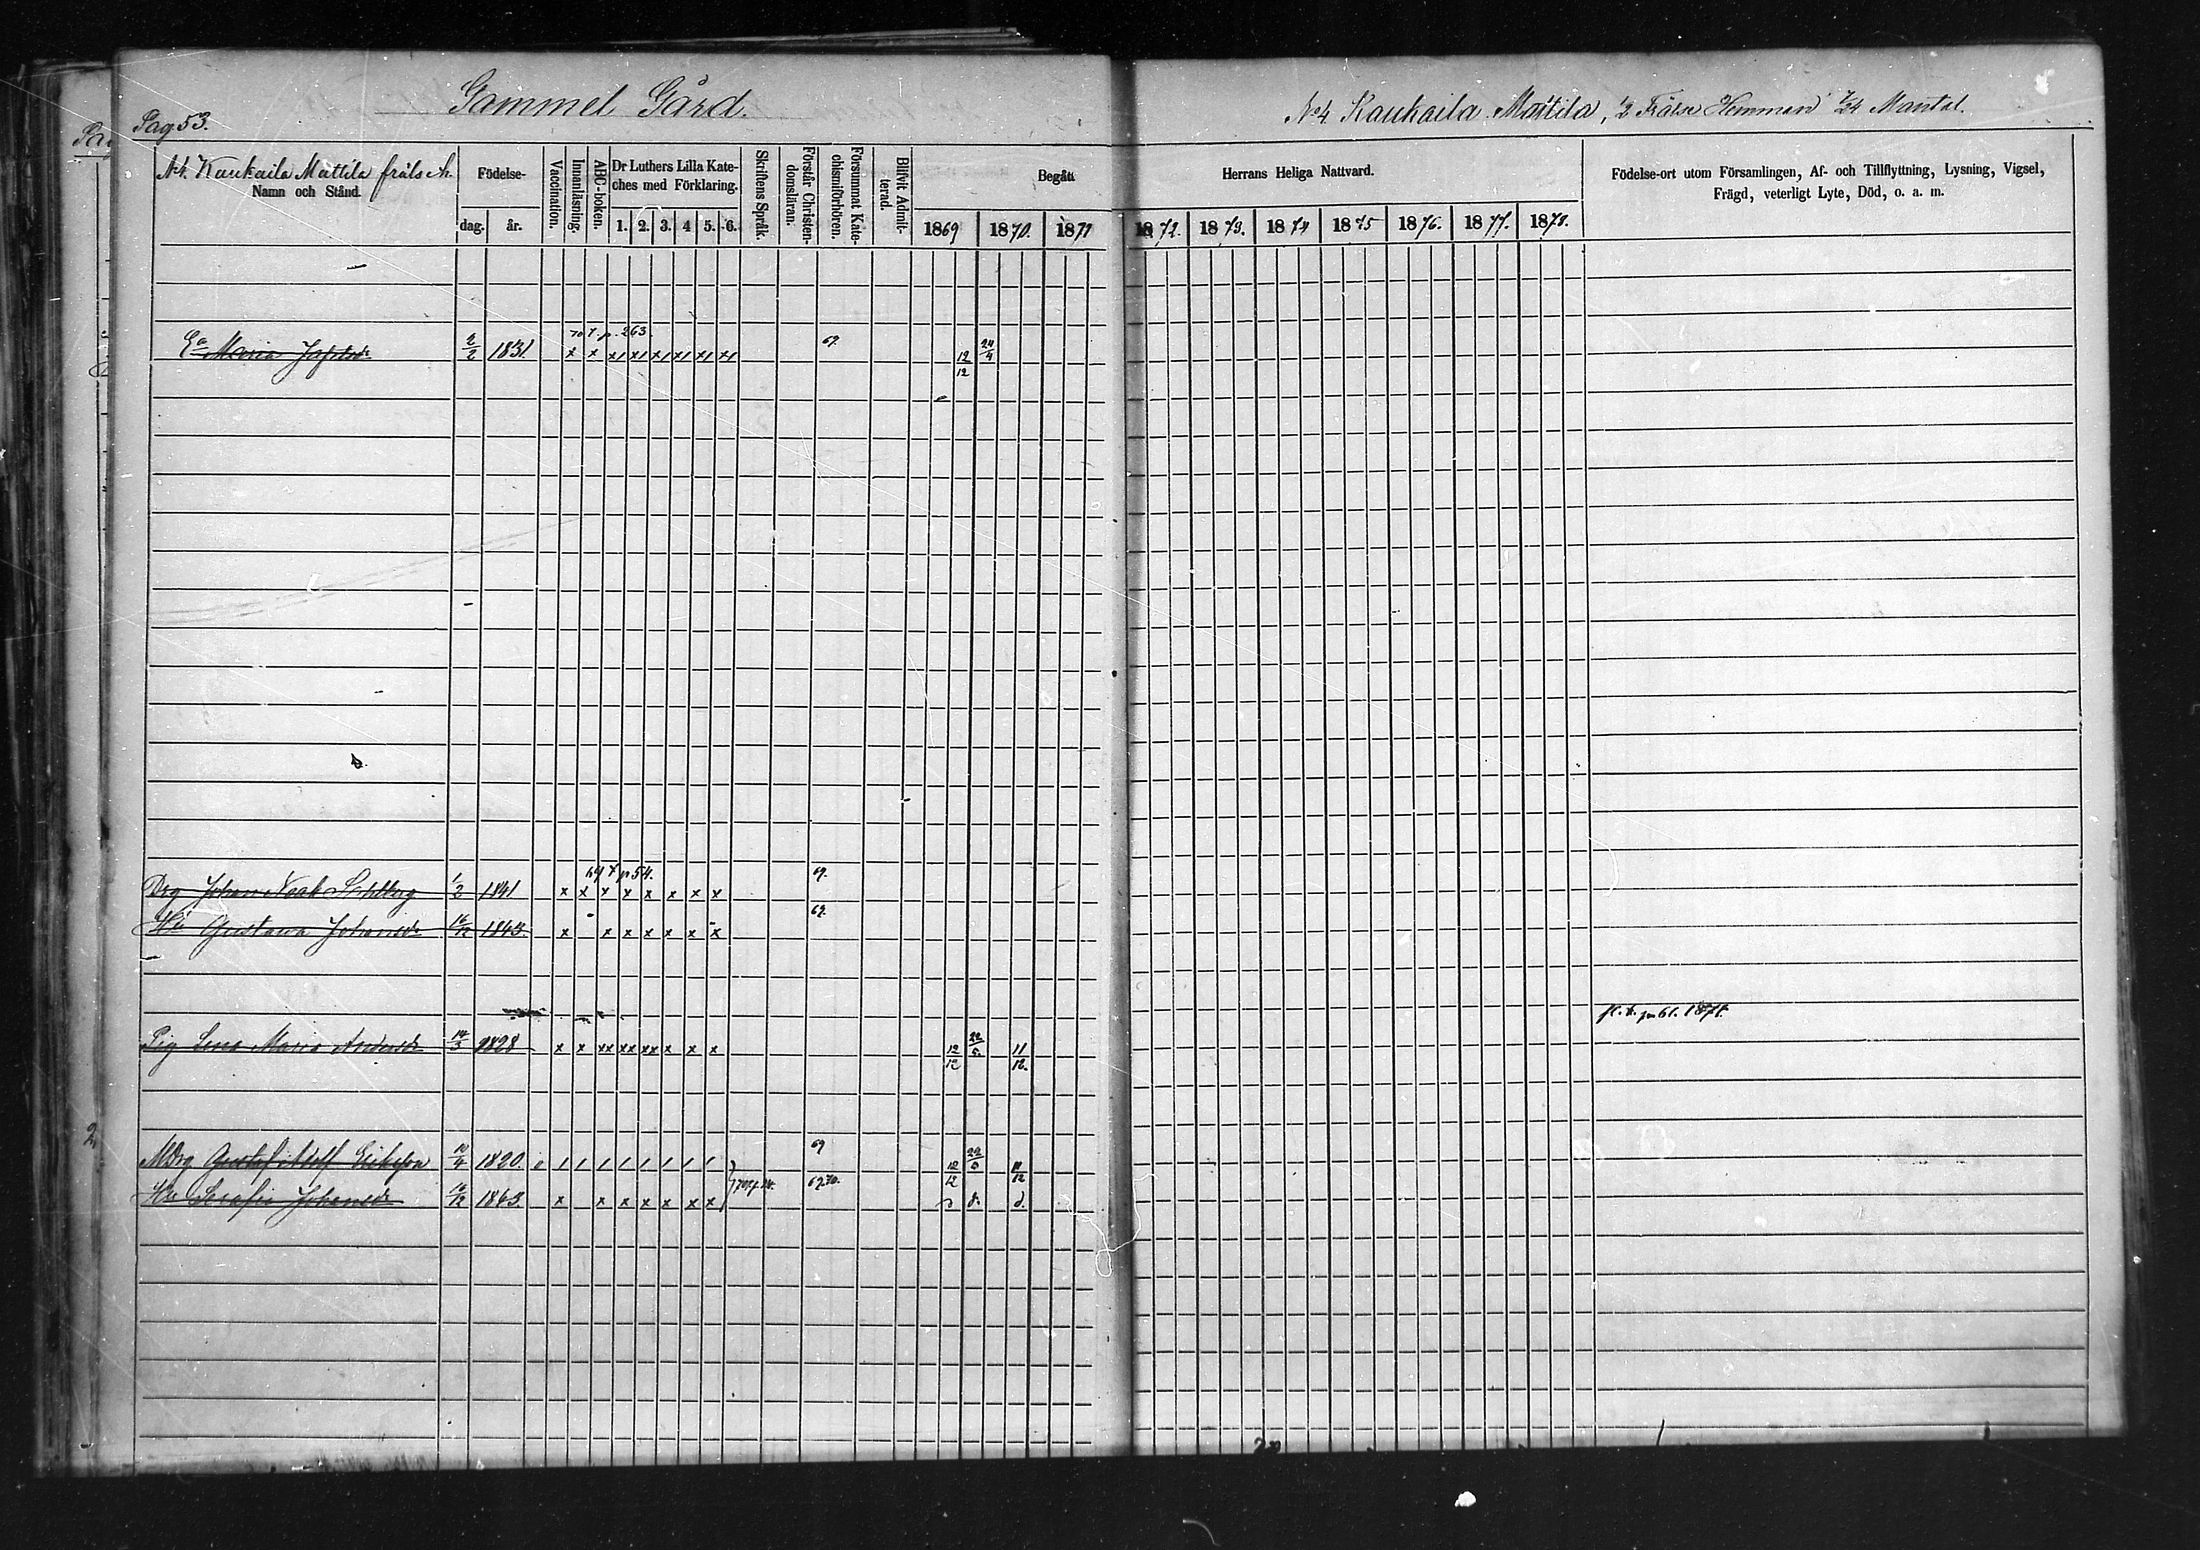 Pag. 53.
Gammel Gård.
No 4 Kaukaila Mattila, 1/2 Frälse Hemman 7/24 Mantal.
N4. Kaukaila Mattila frälse h.
Namn och Stånd.
Födelse-
dag. år.
Vaccination.
Innanläsning.
ABC-boken.
Dr Luthers Lilla Kate-
ches med Förklaring.
1. 2. 3. 4 5. 6.
Skriftens Språk.
Förstår Christen-
domsläran.
Försummat Kate-
chismiförhören.
Blifvit Admit-
terad.
Begått
Herrans Heliga Nattvard.
1869 1870. 1871 1872. 1873. 1874 1875 1876. 1877. 1878.
Födelse-ort utom Församlingen, Af- och Tillflyttning, Lysning, Vigsel,
Frägd, veterligt Lyte, Död, o. a. m.
p. 263.
Maria 2/2 1831. x x x1 x1 x1 x1 x1 x1 69. 12/12 24/4
69 p 54. 69.
Drg Johan Noak 1/2 1841 x x x x x x x x
69.
Gustava Johansd. 16/12 1843. x x x x x x x
fl. t. p 61. 1871.
Pig Lena Maria Andersd. 14/3 1828 x x xx xx xx x x x 12/12 22/5. 11/12.
69
Gustaf Adolf 10/4 1820. 12/12 22/5 11/12
69.70.
Serafia Johansd. 16/12 1843. x x x x x x x d. d.